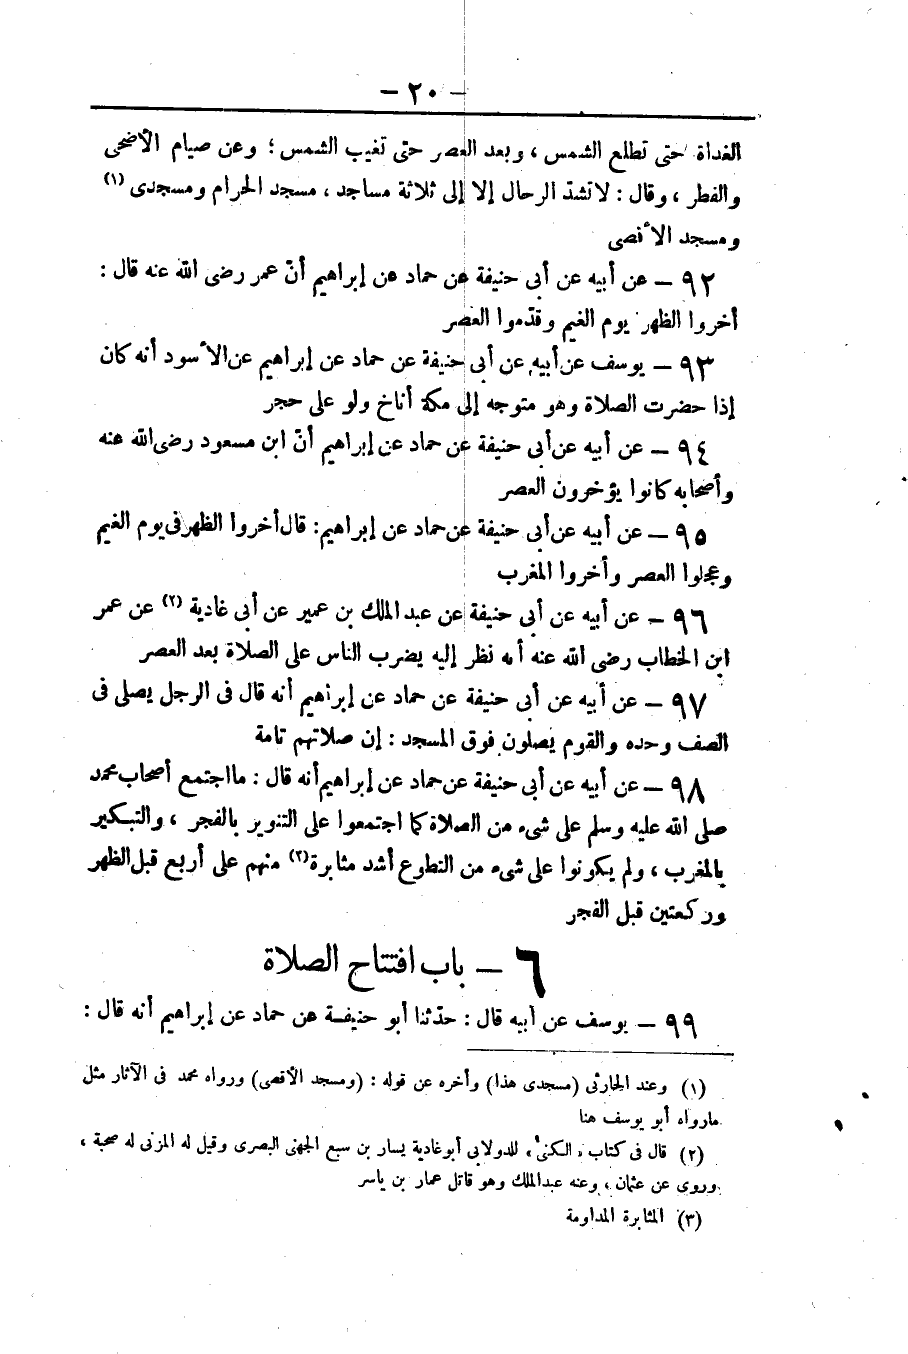 — ٢٠ —
الغداة حتى تطلع الشمس ، وبعد العصر حتى تغيب الشمس ؛ وعن صيام الأضحى
والفطر ، وقال : لا تشد الرحال إلا إلى ثلاثة مساجد ، مسجد الحرام ومسجدى (١)
ومسجد الأقصى
٩٢ — عن أبيه عن أبى حنيفة عن حماد عن إبراهيم أنّ عمر رضى الله عنه قال :
أخروا الظهر يوم الغيم وقدّموا العصر
٩٣ — يوسف عن أبيه عن أبى حنيفة عن حماد عن إبراهيم عن الأسود أنه كان
إذا حضرت الصلاة وهو متوجه إلى مكة أناخ ولو على حجر
٩٤ — عن أبيه عن أبى حنيفة عن حماد عن إبراهيم أنّ ابن مسعود رضى الله عنه
وأصحابه كانوا يؤخرون العصر
٩٥ — عن أبيه عن أبى حنيفة عن حماد عن إبراهيم : قال أخروا الظهر فى يوم الغيم
وعجلوا العصر وأخروا المغرب
٩٦ — عن أبيه عن أبى حنيفة عن عبد الملك بن عمير عن أبى غادية (٢) عن عمر
ابن الخطاب رضى الله عنه أنه نظر إليه يضرب الناس على الصلاة بعد العصر
٩٧ — عن أبيه عن أبى حنيفة عن حماد عن إبراهيم أنه قال فى الرجل يصلى فى
الصف وحده والقوم يصلون فوق المسجد : إن صلاتهم تامة
٩٨ — عن أبيه عن أبى حنيفة عن حماد عن إبراهيم أنه قال : ما اجتمع أصحاب محمد
صلى الله عليه وسلم على شىء من الصلاة كما اجتمعوا على التنوير بالفجر ، والتبكير
بالمغرب ، ولم يكونوا على شىء من التطوع أشد مثابرة (٣) منهم على أربع قبل الظهر
وركعتين قبل الفجر
٦ — باب افتتاح الصلاة
٩٩ — يوسف عن أبيه قال : حدّثنا أبو حنيفة عن حماد عن إبراهيم أنه قال :
(١) وعند الحارثى (مسجدى هذا) وأخره عن قوله : (ومسجد الأقصى) ورواه محمد فى الآثار مثل
ما رواه أبو يوسف هنا
(٢) قال فى كتاب « الكنى » للدولابى أبو غادية يسار بن سبع الجهنى البصرى وقيل له المزنى له صحبة ،
وروى عن عثمان ، وعنه عبد الملك وهو قاتل عمار بن ياسر
(٣) المثابرة المداومة